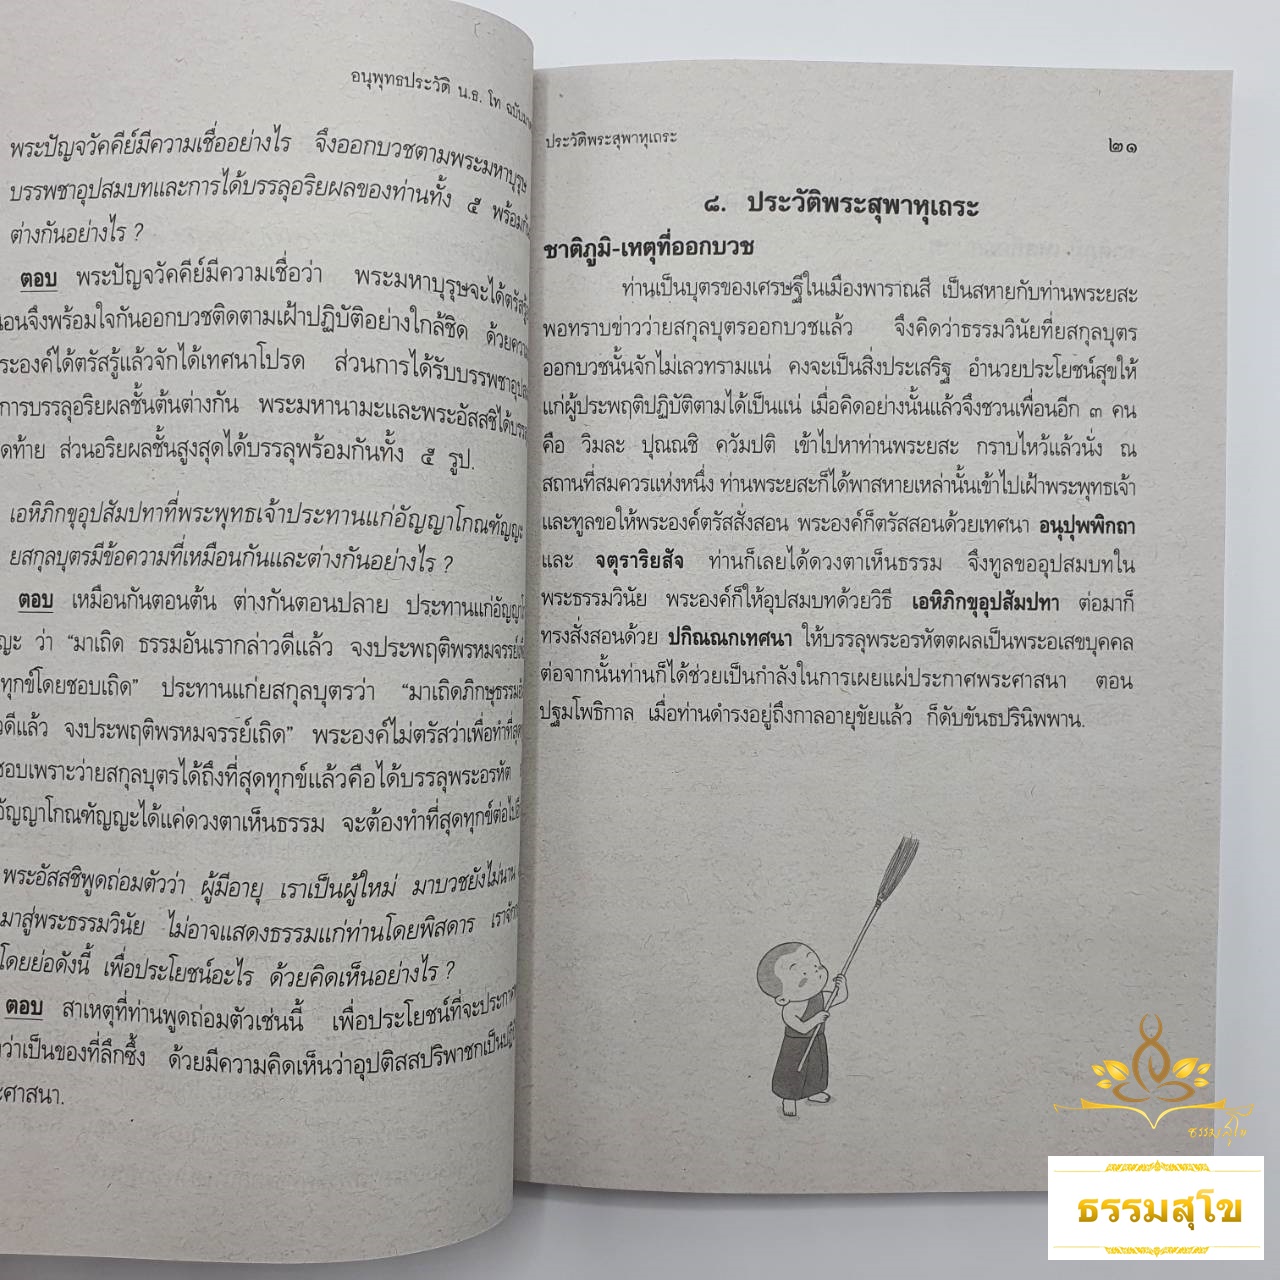 อนุพุทธประวัติ น.ธ. โท
พระปัญจวัคคีย์มีความเชื่ออย่างไร จึงออกบวชตามพระมหาบุรุษ
บรรพชาอุปสมบทและการได้บรรลุอริยผลของท่านทั้ง ๕ พร้อมกัน
ต่างกันอย่างไร ?
ตอบ พระปัญจวัคคีย์มีความเชื่อว่า พระมหาบุรุษจะได้ตรัสรู้
จึงพร้อมใจกันออกบวชติดตามเฝ้าปฏิบัติอย่างใกล้ชิด ด้วย
ได้ตรัสรู้แล้วจักได้เทศนาโปรด ส่วนการได้รับบรรพชา
การบรรลุอริยผลชั้นต้นต่างกัน พระมหานามะและพระอัสสชิได้
ส่วนอริยผลชั้นสูงสุดได้บรรลุพร้อมกันทั้ง ๕ รูป.
เอหิภิกขุอุปสัมปทาที่พระพุทธเจ้าประทานแก่อัญญาโกณฑัญญะ
ยสกุลบุตรมีข้อความที่เหมือนกันและต่างกันอย่างไร ?
ตอบ เหมือนกันตอนต้น ต่างกันตอนปลาย ประทานแก่
ว่า “มาเถิด ธรรมอันเรากล่าวดีแล้ว จงประพฤติพรหมจรรย์
ทุกข์โดยชอบเถิด” ประทานแก่ยสกุลบุตรว่า “มาเถิดภิกษุ
ดีแล้ว จงประพฤติพรหมจรรย์เถิด” พระองค์ไม่ตรัสว่าเพื่อทำที่สุด
ชอบเพราะว่ายสกุลบุตรได้ถึงที่สุดทุกข์แล้วคือได้บรรลุพระอรหัต
อัญญาโกณฑัญญะได้แค่ดวงตาเห็นธรรม จะต้องทำที่สุดทุกข์ต่อไป
พระอัสสชิพูดถ่อมตัวว่า ผู้มีอายุ เราเป็นผู้ใหม่ มาบวชยังไม่นาน
มาสู่พระธรรมวินัย ไม่อาจแสดงธรรมแก่ท่านโดยพิสดาร
โดยย่อดังนี้ เพื่อประโยชน์อะไร ด้วยคิดเห็นอย่างไร ?
ตอบ สาเหตุที่ท่านพูดถ่อมตัวเช่นนี้ เพื่อประโยชน์ที่จะ
ว่าเป็นของที่ลึกซึ้ง ด้วยมีความคิดเห็นว่าอุปติสสปริพาชกเป็น
ศาสนา.
ประวัติพระสุพาหุเถระ ๒๑
๘. ประวัติพระสุพาหุเถระ
ชาติภูมิ-เหตุที่ออกบวช
ท่านเป็นบุตรของเศรษฐีในเมืองพาราณสี เป็นสหายกับท่านพระยสะ
พอทราบข่าวว่ายสกุลบุตรออกบวชแล้ว จึงคิดว่าธรรมวินัยที่ยสกุลบุตร
ออกบวชนั้นจักไม่เลวทรามแน่ คงจะเป็นสิ่งประเสริฐ อำนวยประโยชน์สุขให้
แก่ผู้ประพฤติปฏิบัติตามได้เป็นแน่ เมื่อคิดอย่างนั้นแล้วจึงชวนเพื่อนอีก ๓ คน
คือ วิมละ ปุณณชิ ควัมปติ เข้าไปหาท่านพระยสะ กราบไหว้แล้วนั่ง ณ
สถานที่สมควรแห่งหนึ่ง ท่านพระยสะก็ได้พาสหายเหล่านั้นเข้าไปเฝ้าพระพุทธเจ้า
และทูลขอให้พระองค์ตรัสสั่งสอน พระองค์ก็ตรัสสอนด้วยเทศนา อนุปุพพิกถา
และ จตุราริยสัจ ท่านก็เลยได้ดวงตาเห็นธรรม จึงทูลขออุปสมบทใน
พระธรรมวินัย พระองค์ก็ให้อุปสมบทด้วยวิธี เอหิภิกขุอุปสัมปทา ต่อมาก็
ทรงสั่งสอนด้วย ปกิณณกเทศนา ให้บรรลุพระอรหัตตผลเป็นพระอเสขบุคคล
ต่อจากนั้นท่านก็ได้ช่วยเป็นกำลังในการเผยแผ่ประกาศพระศาสนา ตอน
ปฐมโพธิกาล เมื่อท่านดำรงอยู่ถึงกาลอายุขัยแล้ว ก็ดับขันธปรินิพพาน.
ธรรมสุโข
ธรรมสุโข